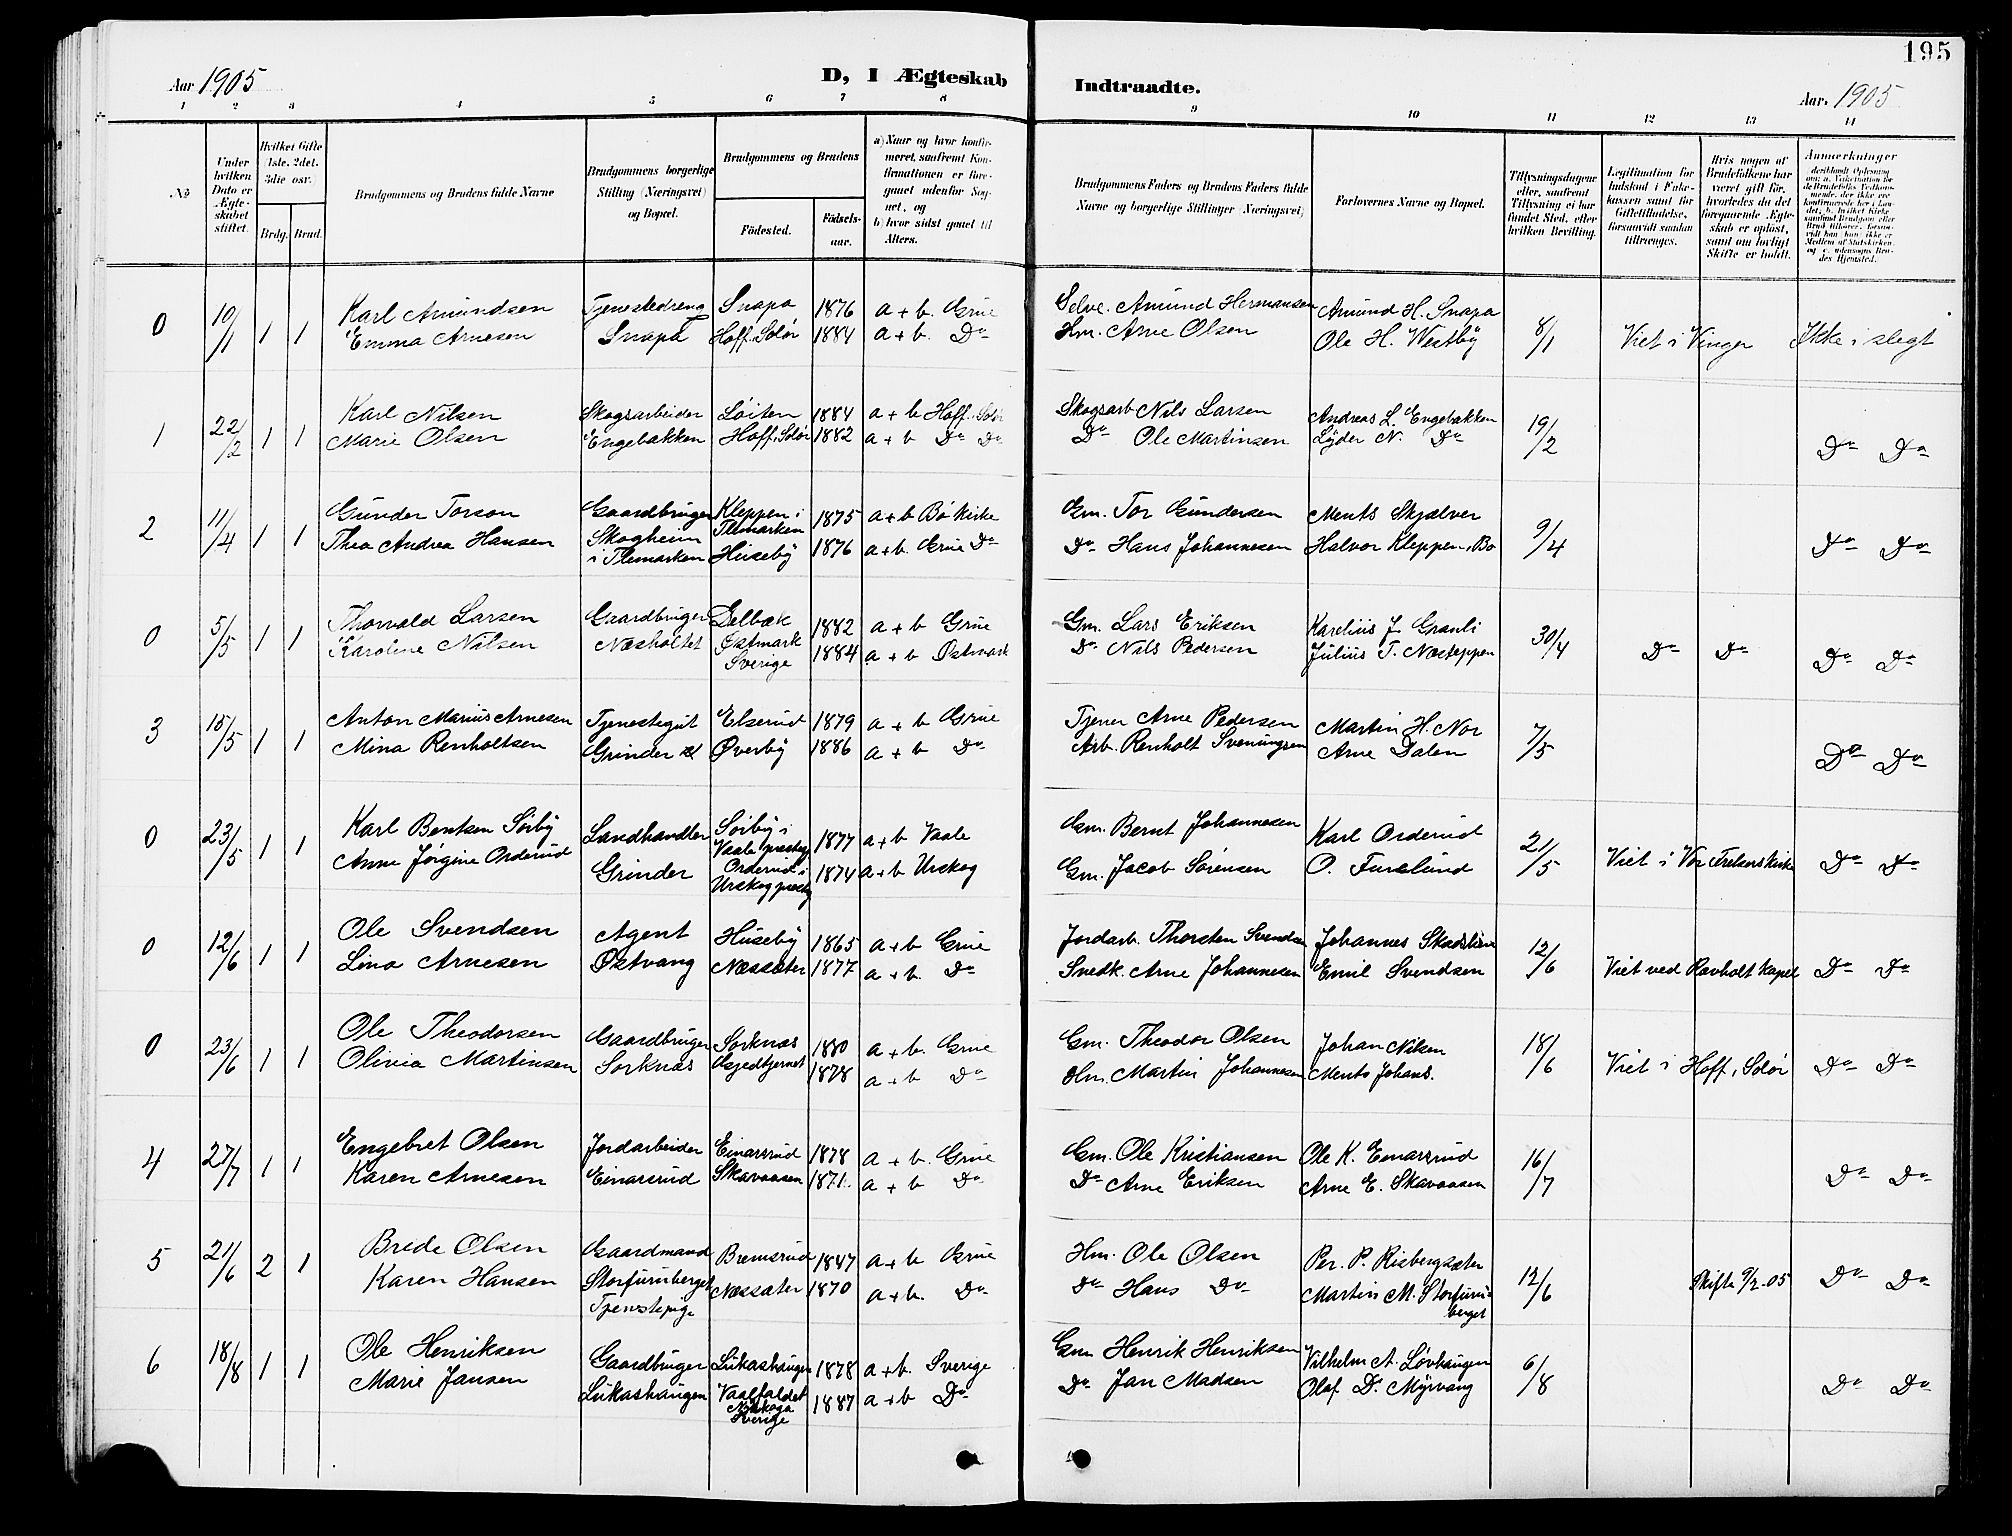 195
Aar 1905 D, I Ægteskab Indtraadte. Aar. 1905
1 2 3 4 5 6 7 8 9 10 11 12 13 14
№
Under hvilken Dato er Ægteskabet stiftet.
Hvilket Gifte 1ste. 2det. 3die osv.)
Brdg. Brud.
Brudgommens og Brudens fulde Navne
Brudgommens borgerlige Stilling (Næringsvei) og Bopæl.
Brudgommens og Brudens
Födested. Födsels-aar.
a) Naar og hvor konfirmeret, saafremt Konfirmationen er foregaaet udenfor Sognet, og
b) hvor sidst gaaet til Alters.
Brudgommens Faders og Brudens Faders fulde Navne og borgerlige Stillinger (Næringsvei)
Forlovernes Navne og Bopæl.
Tillysningsdagene eller, saafremt Tillysning ei har fundet Sted, efter hvilken Bevilling.
Legitimation for Indskud i Enkekassen samt for Giftetilladelse, forsaavidt saadan tiltrænges.
Hvis nogen af Brudefolkene har været gift før, hvorledes da det foregaaende Ægteskab er opløst, samt om lovligt Skifte er holdt.
Anmærkninger
0 10/1 1 1 Karl Amundsen Tjenestedreng Snapa 1876 a + b. Grue Selve. Amund Hermansen Amund H. Snapa 8/1 Viet i Vinger Ikke i slegt
Emma Arnesen Snapa Hoff. Solør 1884 a + b. Do Hm. Arne Olsen Ole H. Westby
1 22/2 1 1 Karl Nilsen Skogsarbeider Løiten 1884 a + b Hoff. Solør Skogsarb Nils Larsen Andreas L. Engebakken 19/2
Marie Olsen Engebakken Hoff, Solør 1882 a + b Do Do Do Ole Martinsen Lyder N. Do Do Do
2 11/4 1 1 Gunder Torson Gaardbruger Kleppen i Tlemarken 1875 a + b Bø Kirke Gm. Tor Gundersen Ments Skjælver 9/4
Thea Andrea Hansen Skogheim i Tlemarken Huseby 1876 a + b. Grue Do Do Hans Johannesen Halvor Kleppen, Bø Do Do
0 5/5 1 1 Thorvald Larsen Gaardbruger Delbæk 1882 a + b Grue Gm. Lars Eriksen Karelius J. Granli 30/4
Karoline Nilsen Næsholtet Østmark Sverige 1884 a + b Østmark Do Nils Pedersen Julius T. Næsteppen Do Do Do Do
3 15/5 1 1 Anton Marius Arnesen Tjenestegut Elserud 1879 a + b Grue Tjener Arne Pedersen Martin H. Nor 7/5
Mina Renholtsen Grinder Øverby 1886 a + b Do Arb. Renholt Svenningsen Arne Dalen Do Do
0 23/5 1 1 Karl Bentsen Sörby Landhandler Sörby i Vaale præstg 1877 a + b Vaale Gm. Bernt Johannesen Karl Orderud 21/5
Anne Jørgine Orderud Grinder Orderud i Urskog præstg 1874 a + b Urskog Gm. Jacob Sørensen O. Furulund Viet i Vor Frelsers kirke Do Do
0 12/6 1 1 Ole Svendsen Agent Huseby 1865 a + b Grue Jordarb. Thorsten Svendsen Johannes 12/6
Lina Arnesen Østvang Næssæter 1877 a + b. Do Snedk. Arne Johannesen Emil Svendsen Viet ved Rævholt kapel Do Do
0 23/6 1 1 Ole Theodorsen Gaardbruger Sorknæs 1880 a + b. Grue Gm. Theodor Olsen Johan Nilsen 18/6
Olivia Martinsen Sorknæs Gjedtjernet 1878 a + b Do Hm. Martin Johannesen Ments Johans. Viet i Hoff, Solør Do Do
4 27/7 1 1 Engebret Olsen Jordarbeider Einarsrud 1878 a + b. Grue Gm. Ole Kristiansen Ole K. Einarsrud 16/7
Karen Arnesen Einarsrud Skavaasen 1871. a + b Do Do Arne Eriksen Arne E. Skavaasen Do Do
5 21/6 2 1 Brede Olsen Gaardmand Bremsrud 1847 a + b Grue Hm. Ole Olsen Per. P. Risbergsæter 12/6
Karen Hansen Storfuruberget Tjenestepige Næssæter 1870 a + b. Do Do Hans Do Martin M. Storfuruberget Skifte 9/2-05 Do Do
6 18/8 1 1 Ole Henriksen Gaardbruger Lukashaugen 1878 a + b. Sverige Gm Henrik Henriksen Vilhelm A. Løvhaugen 6/8
Marie Jansen Lukashaugen Vaalfaldet Nyskoga Sverige 1887 a + b Do Do Jan Madsen Olaf D. Myrvang Do Do